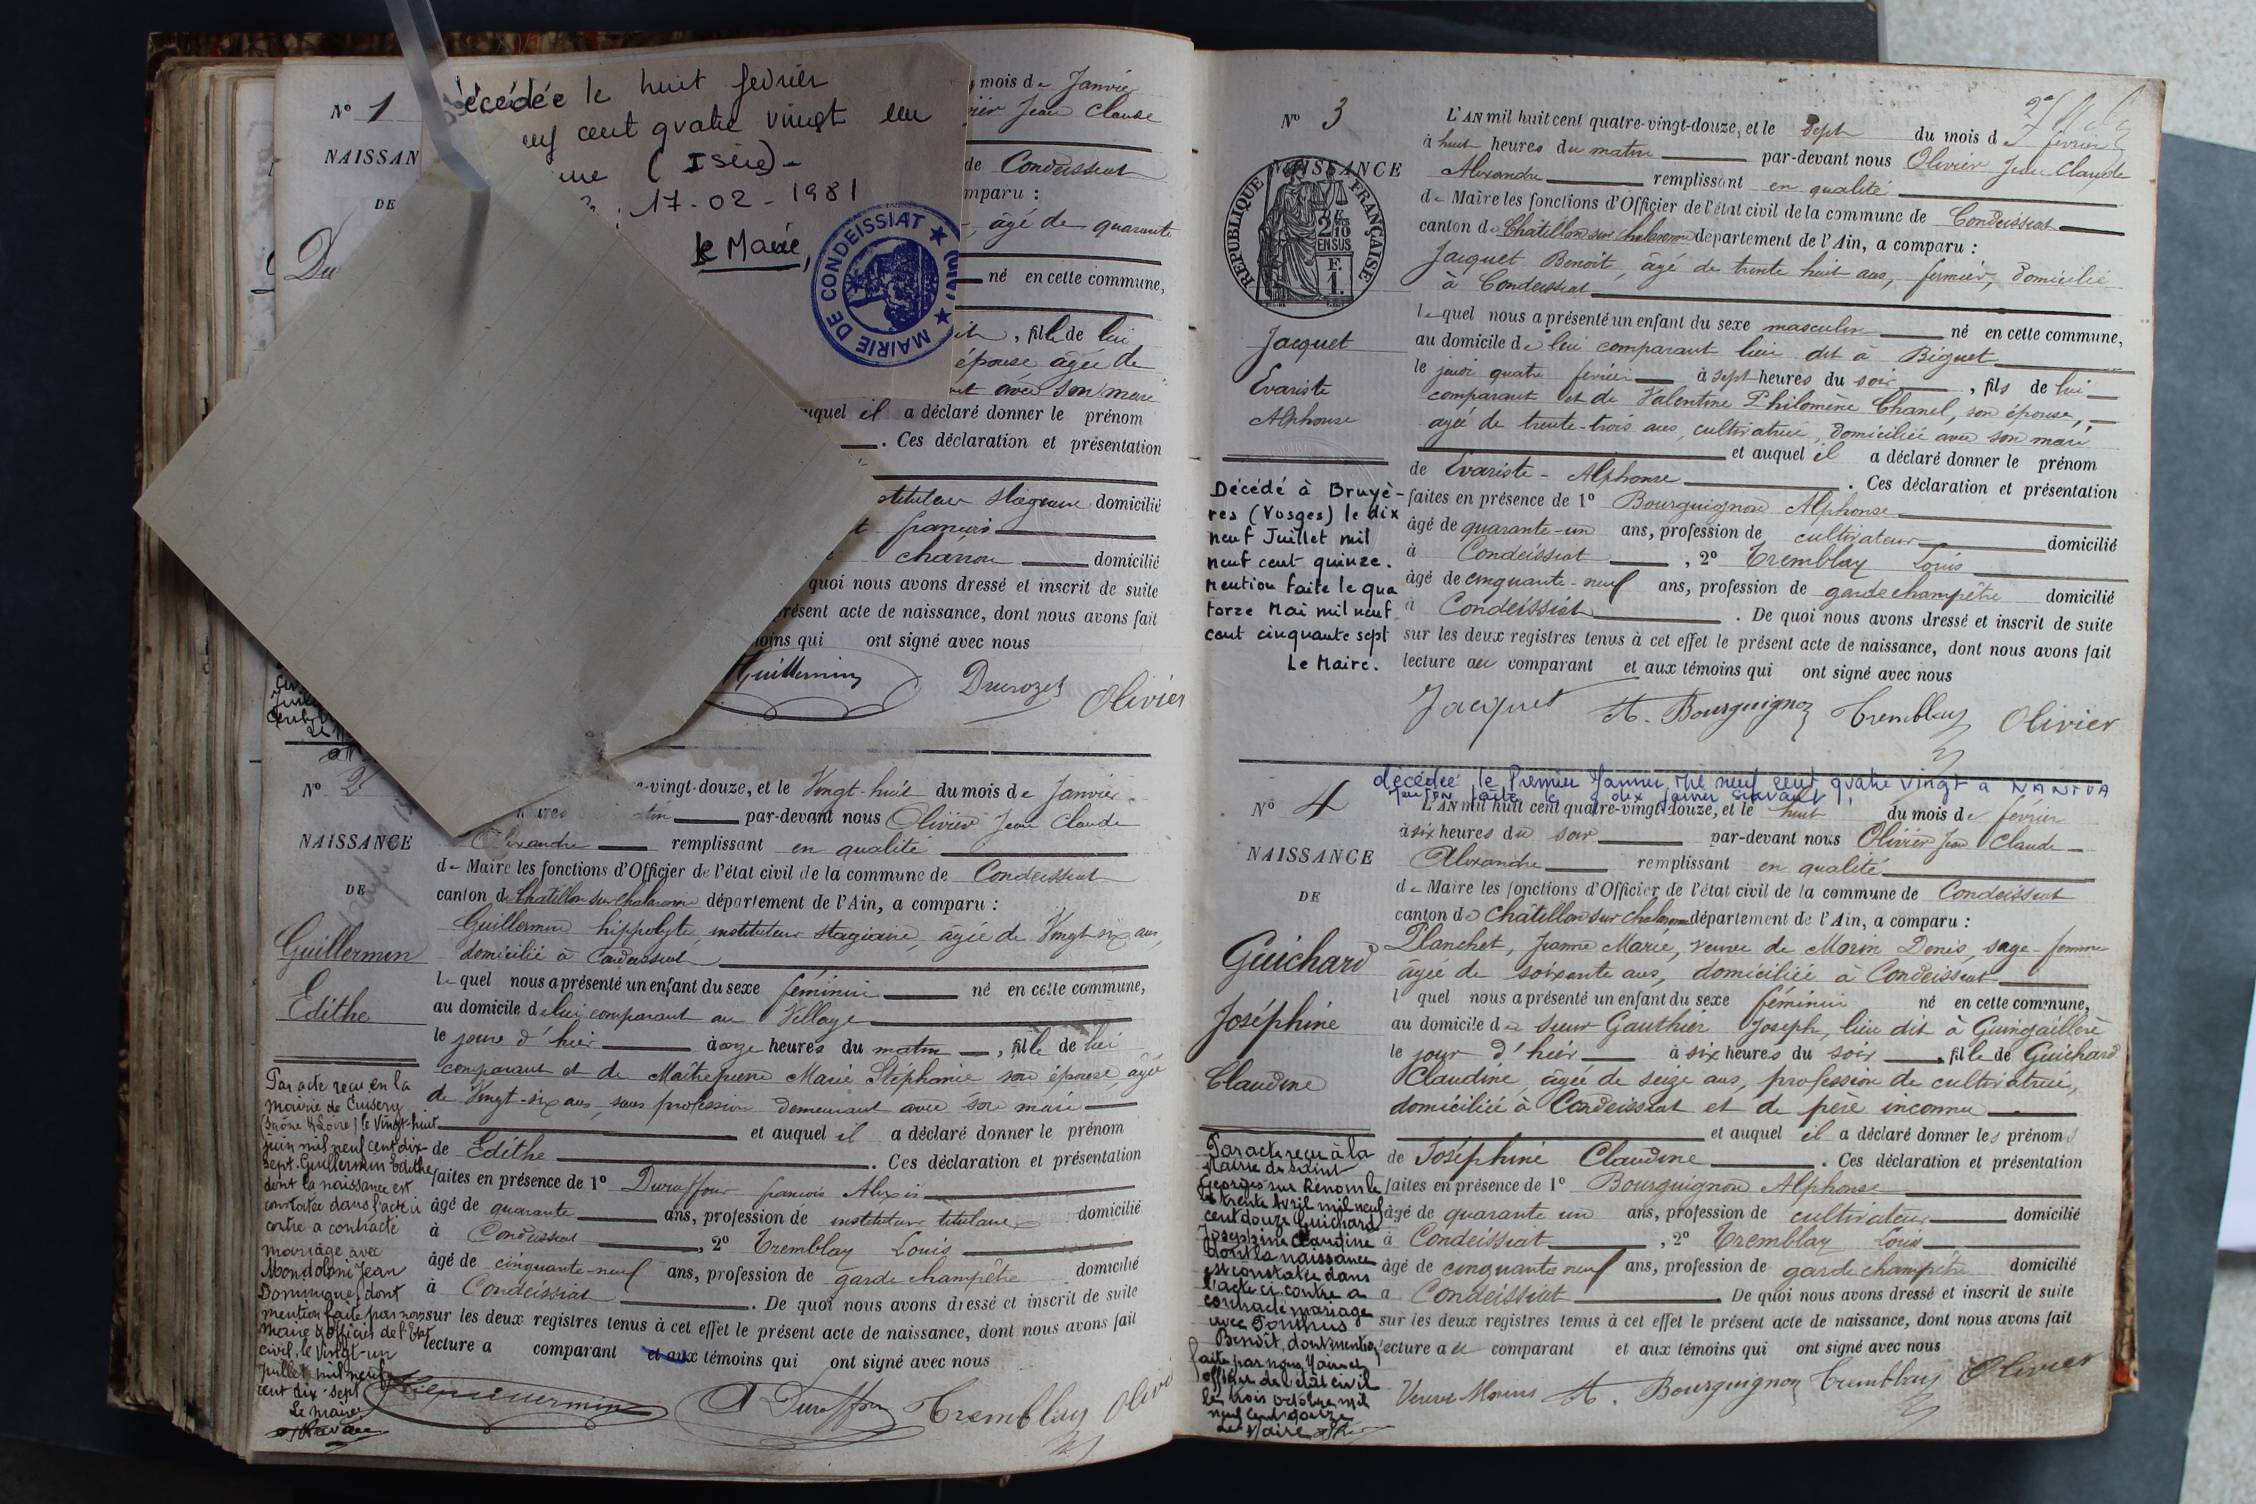 N° 1
NAISSAN
DE
Du
décédée le huit fevrier
euf cent quatre vingt un
(Isère) -
17-02-1981
le Maire,
MAIRIE DE CONDEISSIAT ★ (AIN) ★
mois de Janvier
Jean Claude
de Condeissiat
mparu :
, âgé de quarante
né en cette commune,
, fille de lui
épouse âgée de
avec son mari
uquel il a déclaré donner le prénom
. Ces déclaration et présentation
stituteur stagiaire domicilié
françois
charron domicilié
quoi nous avons dressé et inscrit de suite
résent acte de naissance, dont nous avons fait
moins qui ont signé avec nous
Guillermin Durozet Olivier
N° 2
NAISSANCE
DE
Guillermin
Edithe
e-vingt-douze, et le Vingt-huit du mois de Janvier
heures matin par-devant nous Olivier Jean Claude
Alexandre remplissant en qualité
de Maire les fonctions d'Officier de l'état civil de la commune de Condeissiat
canton de Chatillon sur Chalaronne département de l'Ain, a comparu :
Guillermin hippolyte, instituteur stagiaire, âgé de Vingt-six ans,
domicilié à Condeissiat
lequel nous a présenté un enfant du sexe féminin né en cette commune,
au domicile de lui comparant au Village
le jour d'hier à onze heures du matin, fille de lui
comparant et de Maitrepierre Marie Stéphanie son épouse, âgée
de Vingt-six ans, sans profession demeurant avec son mari
et auquel il a déclaré donner le prénom
de Edithe . Ces déclaration et présentation
faites en présence de 1° Duraffour françois Alexis
âgé de quarante ans, profession de instituteur titulaire domicilié
à Condeissiat , 2° Tremblay Louis
âgé de cinquante-neuf ans, profession de garde champêtre domicilié
à Condeissiat . De quoi nous avons dressé et inscrit de suite
sur les deux registres tenus à cet effet le présent acte de naissance, dont nous avons fait
lecture a comparant et aux témoins qui ont signé avec nous
Guillermin A Duraffour Tremblay Olivier
Par acte reçu en la
mairie de Cuisery
(Saône & Loire) le Vingt-huit
juin mil neuf cent dix-
sept. Guillermin Edithe
dont la naissance est
constatée dans l'acte ci
contre a contracté
mariage avec
Mondoloni Jean
Dominique, dont
mention faite par nous
Maire & officier de l'Etat
civil, le Vingt-un
juillet mil neuf
cent dix-sept
Le maire,
N° 3
NAISSANCE
RÉPUBLIQUE FRANÇAISE
2/10
EN SUS
F.
1.
Jacquet
Evariste
Alphonse
L'AN mil huit cent quatre-vingt-douze, et le sept du mois de février
à huit heures du matin par-devant nous Olivier Jean Claude
Alexandre remplissant en qualité
de Maire les fonctions d'Officier de l'état civil de la commune de Condeissiat
canton de Châtillon sur Chalaronne département de l'Ain, a comparu :
Jacquet Benoit, âgé de trente huit ans, fermier, domicilié
à Condeissiat
lequel nous a présenté un enfant du sexe masculin né en cette commune,
au domicile de lui comparant lieu dit à Biguet
le jeudi quatre février à sept heures du soir, fils de lui
comparant et de Valentine Philomène Chanel, son épouse,
agée de trente-trois ans, cultivatrice, domiciliée avec son mari
et auquel il a déclaré donner le prénom
de Evariste - Alphonse . Ces déclaration et présentation
faites en présence de 1° Bourguignon Alphonse
âgé de quarante-un ans, profession de cultivateur domicilié
à Condeissiat , 2° Tremblay Louis
âgé de cinquante-neuf ans, profession de garde champêtre domicilié
à Condeissiat . De quoi nous avons dressé et inscrit de suite
sur les deux registres tenus à cet effet le présent acte de naissance, dont nous avons fait
lecture au comparant et aux témoins qui ont signé avec nous
Jacquet A. Bourguignon Tremblay Olivier
Décédé à Bruyè-
res (Vosges) le dix
neuf Juillet mil
neuf cent quinze.
Mention faite le qua
torze Mai mil neuf
cent cinquante sept
Le Maire.
décédée le Premier Janvier Mil neuf cent quatre vingt a NANTUA
faite le dix Janvier suivant
N° 4
NAISSANCE
DE
Guichard
Joséphine
Claudine
L'AN mil huit cent quatre-vingt-douze, et le huit du mois de février
à six heures du soir par-devant nous Olivier Jean Claude
Alexandre remplissant en qualité
de Maire les fonctions d'Officier de l'état civil de la commune de Condeissiat
canton de Châtillon sur Chalaronne département de l'Ain, a comparu :
Planchet, Jeanne Marie, veuve de Morin Denis, sage-femme
âgée de soixante ans, domiciliée à Condeissiat
l quel nous a présenté un enfant du sexe féminin né en cette commune,
au domicile de sieur Gauthier Joseph, lieu dit à Guingaillère
le jour d'hier à six heures du soir, fille de Guichard
Claudine, âgée de seize ans, profession de cultivatrice,
domiciliée à Condeissiat et de père inconnu
et auquel il a déclaré donner les prénoms
de Joséphine Claudine . Ces déclaration et présentation
faites en présence de 1° Bourguignon Alphonse
âgé de quarante un ans, profession de cultivateur domicilié
à Condeissiat , 2° Tremblay Louis
âgé de cinquante neuf ans, profession de garde champêtre domicilié
à Condeissiat De quoi nous avons dressé et inscrit de suite
sur les deux registres tenus à cet effet le présent acte de naissance, dont nous avons fait
lecture au comparant et aux témoins qui ont signé avec nous
Veuve Morin A. Bourguignon Tremblay Olivier
Par acte reçu à la
Mairie de Saint
Georges sur Renom le
trente Avril mil neuf
cent douze Guichard
Joséphine Claudine
dont la naissance
est constatée dans
l'acte ci-contre a
contracté mariage
avec
Benoît, dont mention
faite par nous Maire et
officier de l'état civil
le trois octobre mil
neuf cent douze
Le Maire